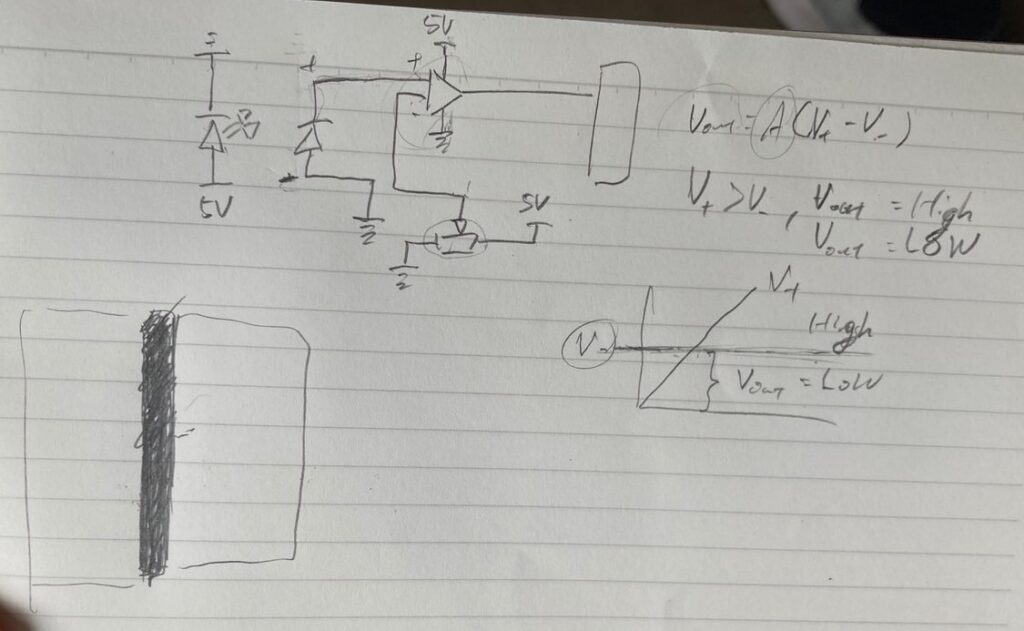 5V
+
+
-
-
5V
5V
Vout = A(V+ - V-)
V+ > V-, Vout = High
Vout = LOW
V+
High
V-
Vout = LOW